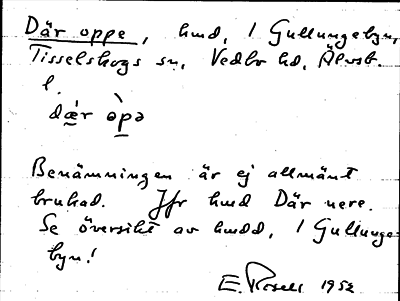 Där oppe, hmd, i Gullungebyn,
Tisselskogs sn, Vedbo hd, Älvsb.
l.
dæ̀r òpə
Benämningen är ej allmänt
brukad. Jfr hmd Där nere.
Se översikt av hmdd, i Gullunge-
byn!
E. Rosell 1952